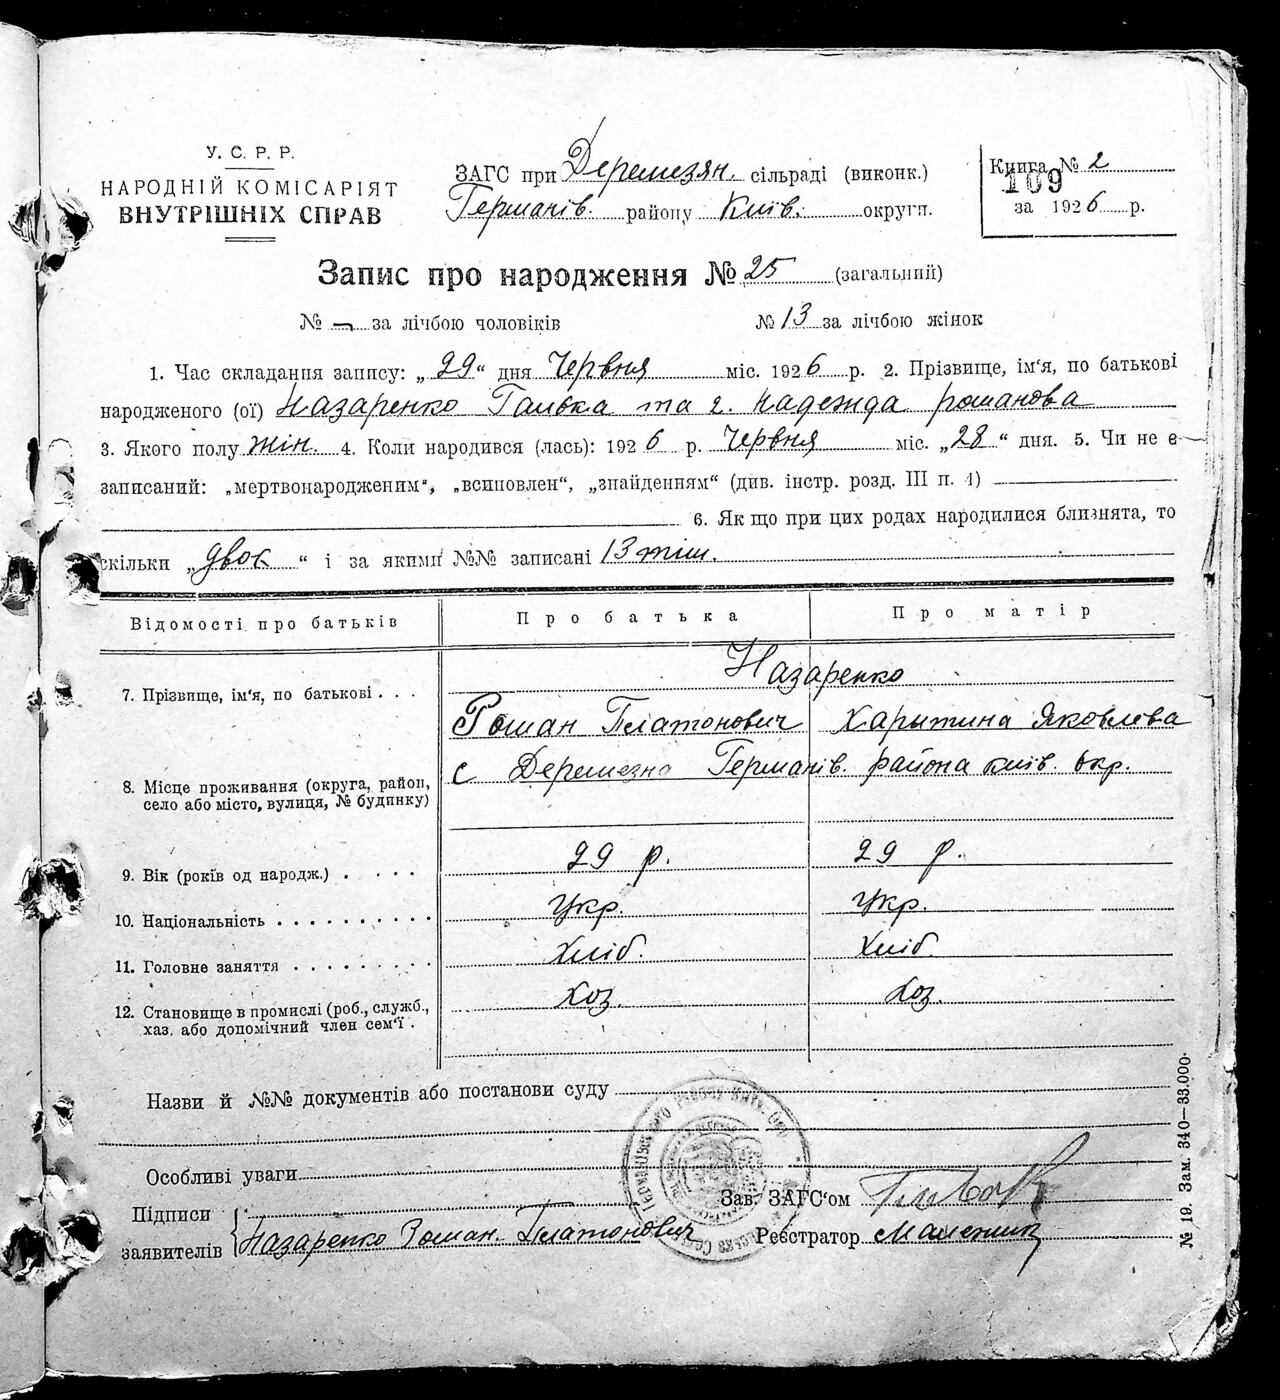 У. С. Р. Р.
НАРОДНІЙ КОМІСАРІЯТ
ВНУТРІШНІХ СПРАВ
ЗАГС при Деремезян. сільраді (виконк.)
Германів. району Київ. округи.
Книга № 2
109
за 1926 р.
Запис про народження № 25 (загальний)
№ — за лічбою чоловіків № 13 за лічбою жінок
1. Час складання запису: „29“ дня Червня міс. 1926 р. 2. Прізвище, ім'я, по батькові
народженого (ої) Назаренко Галька та 2. Надежда романова
3. Якого полу жін. 4. Коли народився (лась): 1926 р. Червня міс. „28“ дня. 5. Чи не є
записаний: „мертвонародженим“, „всиновлен“, „знайденням“ (див. інстр. розд. III п. 4)
6. Як що при цих родах народилися близнята, то
скільки „двох“ і за якими №№ записані 13
Відомості про батьків Про батька Про матір
Назаренко
7. Прізвище, ім'я, по батькові . . . Роман Платонович Харытина Яковлева
с Деремезна Германів. района київ. окр.
8. Місце проживання (округа, район,
село або місто, вулиця, № будинку)
9. Вік (років од народж.) . . . . . 29 р. 29 р.
10. Національність . . . . . . . . . . Укр. Укр.
11. Головне заняття . . . . . . . . . Хліб. Хліб.
12. Становище в промислі (роб., служб., Хоз. Хоз.
хаз. або допомічний член сем'ї .
Назви й №№ документів або постанови суду
Особливі уваги
Зав. ЗАГС'ом
Підписи
заявителів Назаренко Роман Платонович Реєстратор
№ 19. Зам. 340—33.000